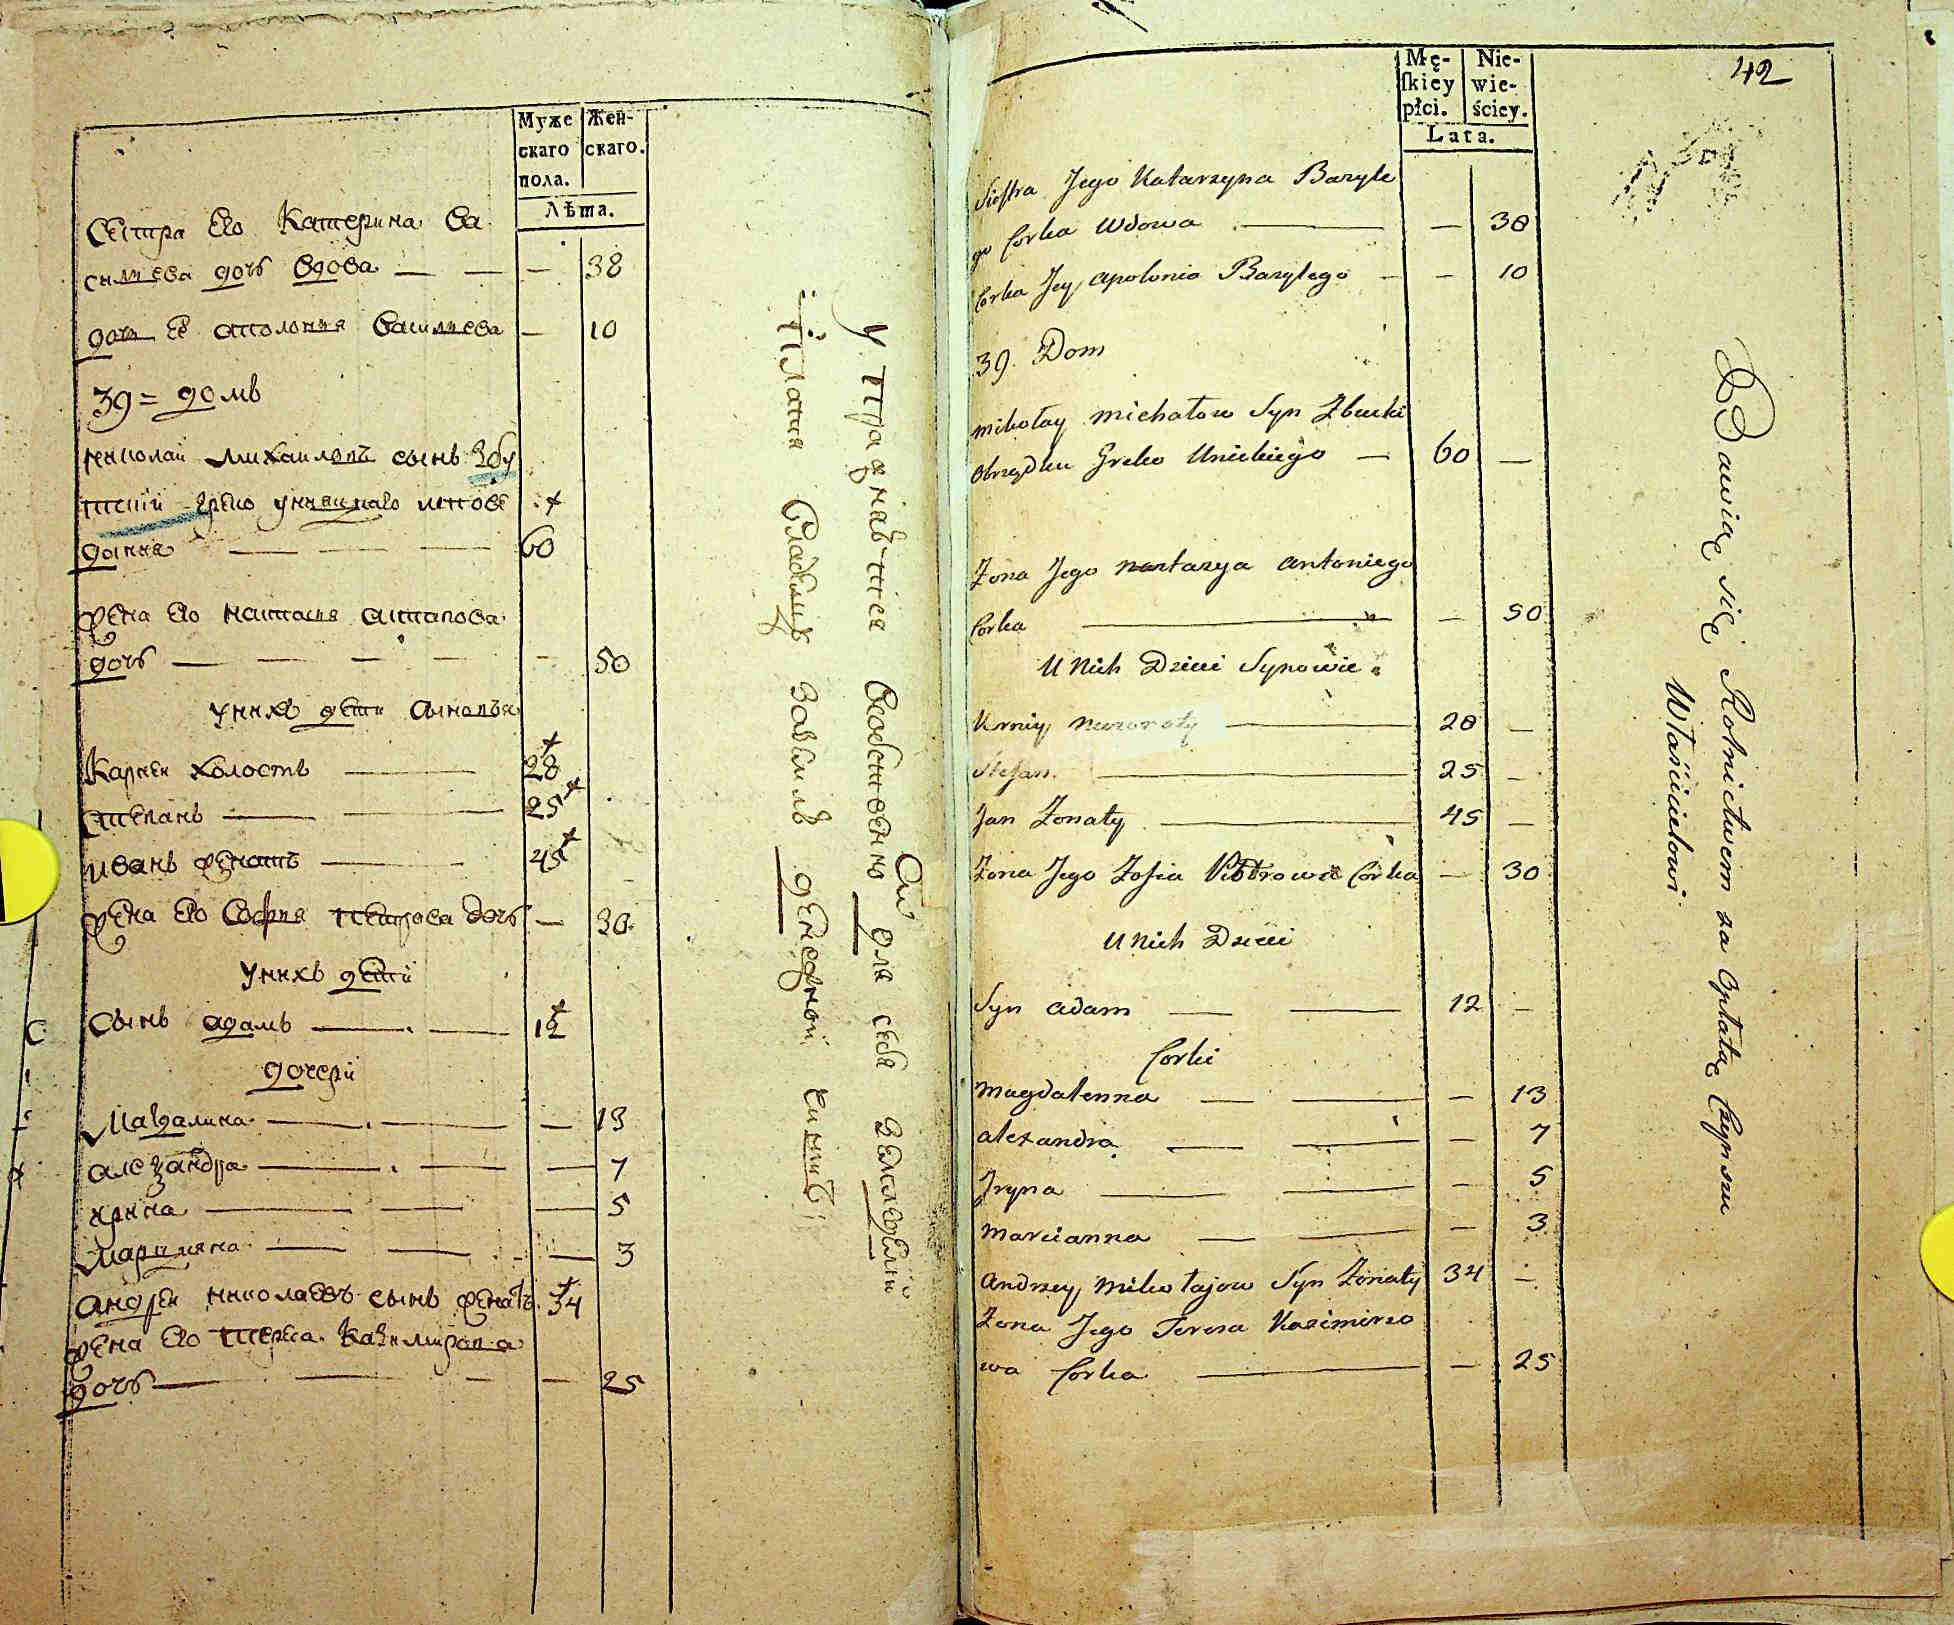 Муже
скаго
пола.
Жен-
скаго.
Лѣта.
Сестра Его Катерина Ва
силиева дочь вдова — — — 38
дочь Её аполония Василиева — 10
39 = домъ
николай Михаиловъ сынъ Збу
цкий греко униацкаго испове
дания — — — 60
жена Его настасия
дочь — — — — — 50
у нихъ дети сыновья
Карней холостъ — 28
степанъ — — 25
иванъ женатъ — 45
жена Его София петрова дочь — 30
у нихъ дети
сынъ адамъ — — 12
дочери
Магдалина — — — 13
александра — — — 7
ирина — — — 5
Марцияна — — — 3
андрей николаевъ сынъ женатъ 34
жена Его тереса Казимирова
дочь — — — — 25
для себя земледелий
Платя владельцу денежной чиншъ
42
Mę-
ſkiey
płci.
Nie-
wie-
ściey.
Lata.
Siostra Jego Katarzyna Bazyle
go Corka Wdowa — — 38
Corka Jey apolonia Bazylego — — 10
39 Dom
mikołay michałow Syn Zbucki
obrządku Greko Unickiego — 60 —
Żona Jego nastazya antoniego
Corka — — 50
U Nich Dzieci Synowie
Kirniy nieżonaty — 28 —
Stefan — 25 —
Jan Żonaty — 45 —
Żona Jego Zofia Piotrowa Corka — 30
U Nich Dzieci
Syn adam — — 12 —
Corki
Magdalenna — — — 13
alexandra — — — 7
Iryna — — — 5
marcianna — — — 3
andrzey mikołajow Syn Żonaty 34 —
Żona Jego Teresa Kazimirzo
wa Corka — — 25
Bawią się Rolnictwem za Opłatą Czynszu
Właścicielowi